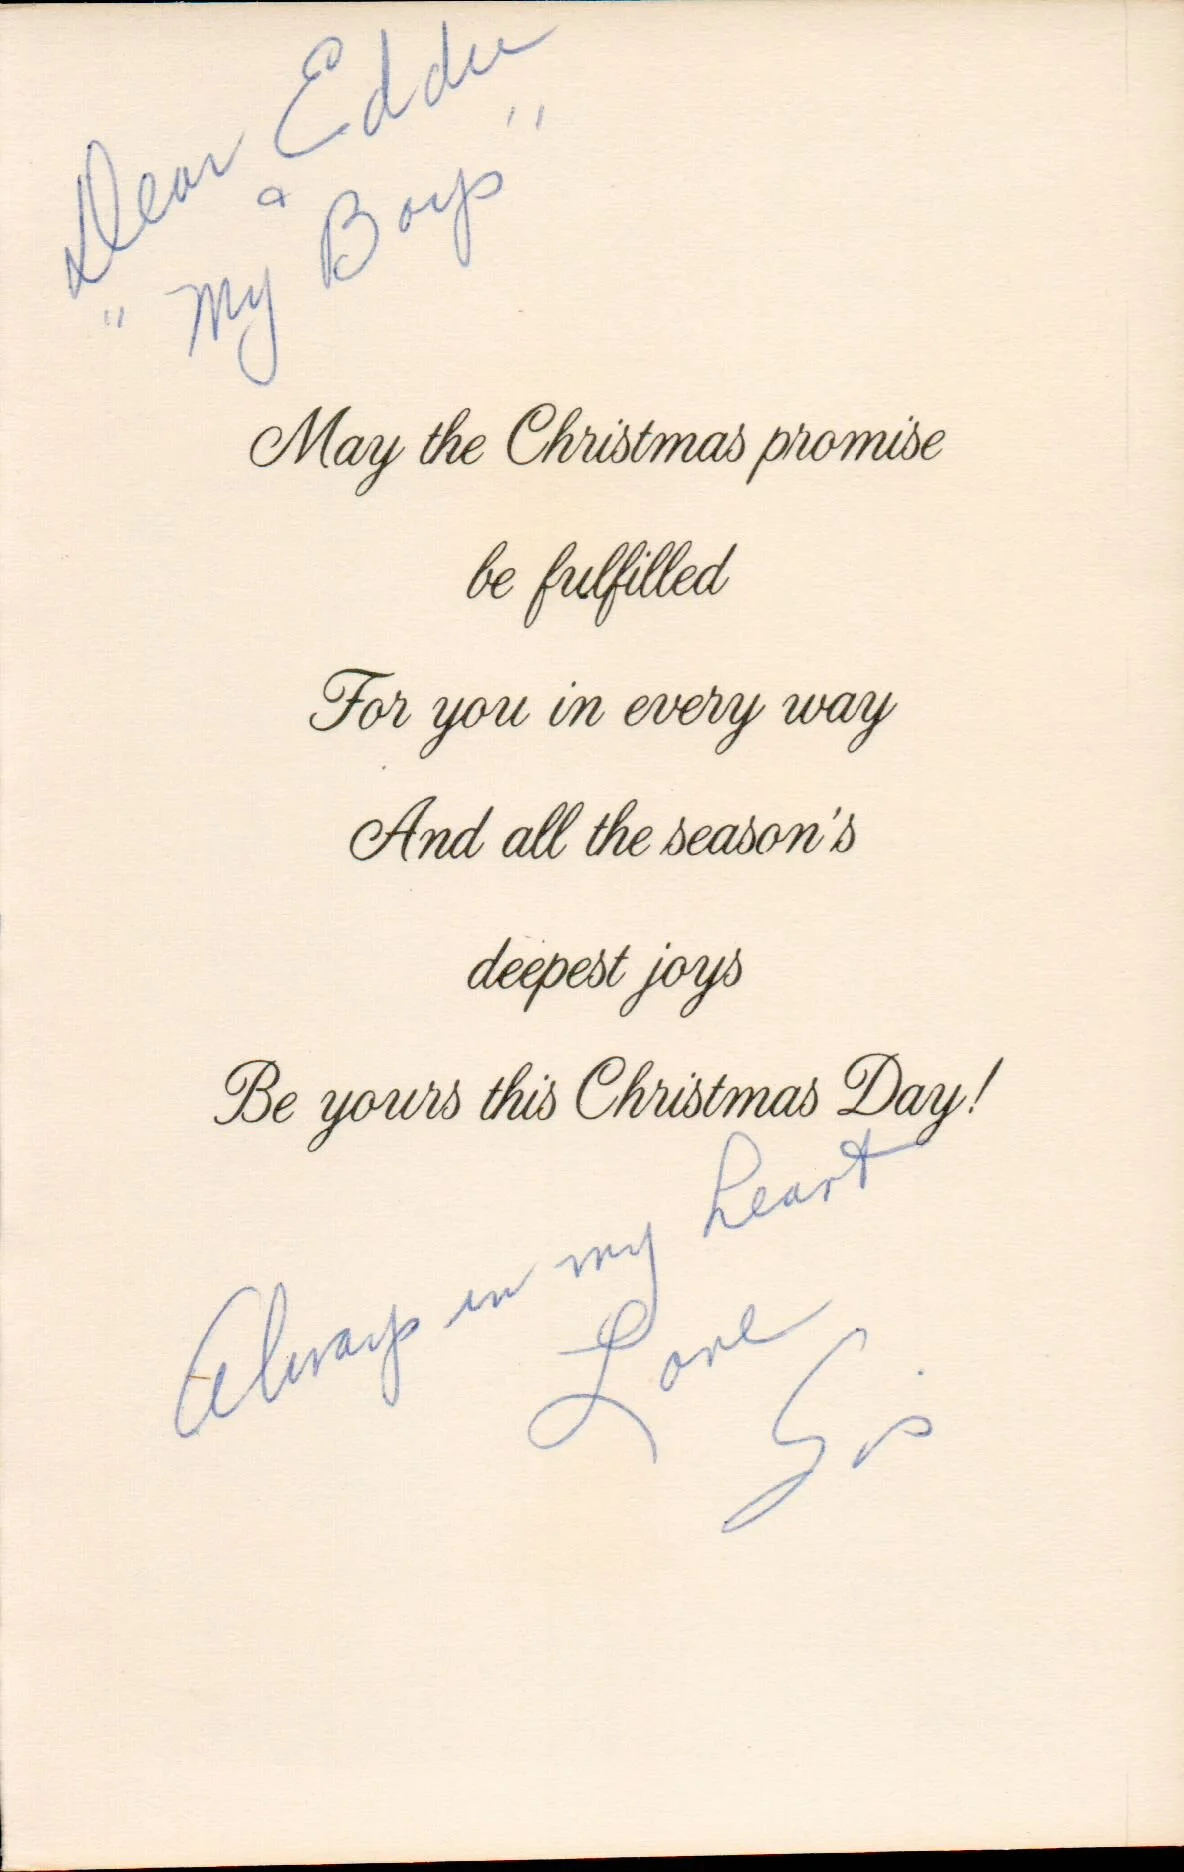 Dear Eddie
&
"My Boys"
May the Christmas promise
be fulfilled
For you in every way
And all the season's
deepest joys
Be yours this Christmas Day!
Always in my heart
Love
Sis